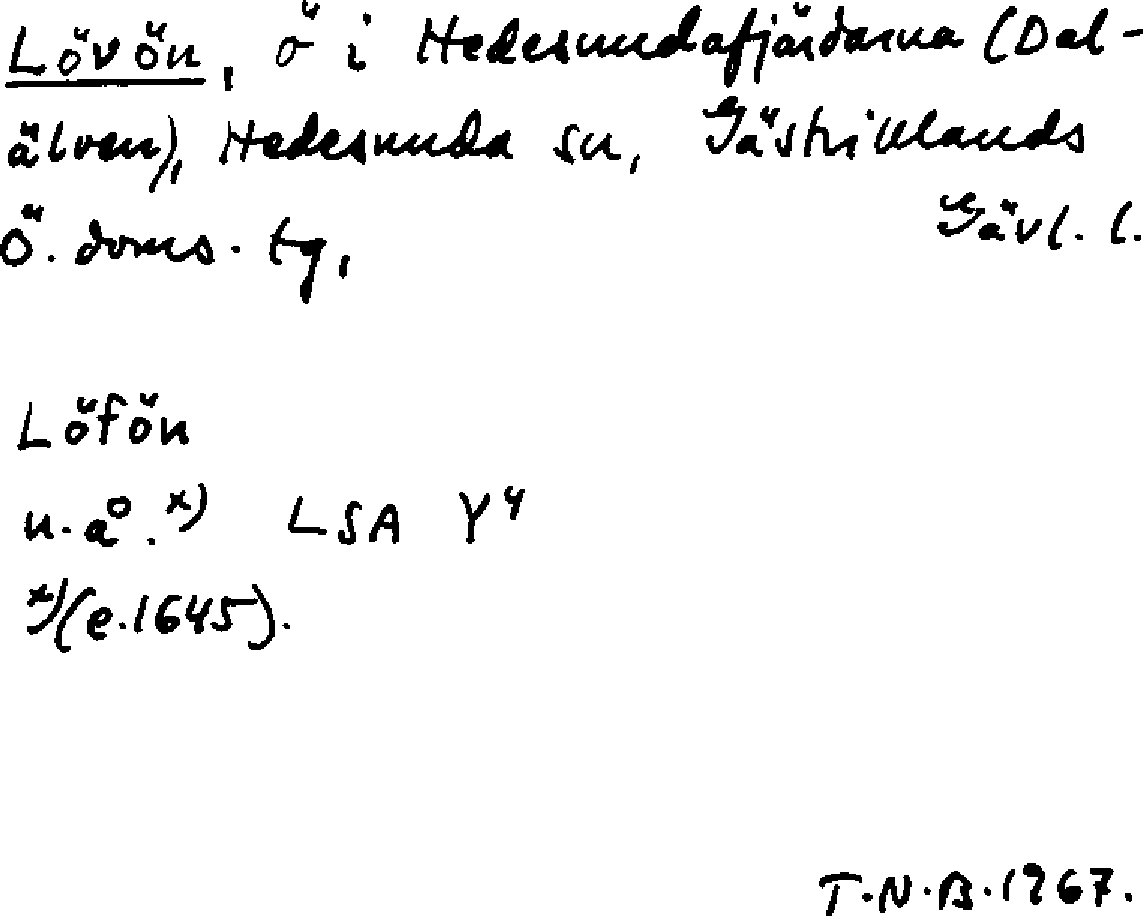 Lövön, ö i Hedesundafjärdarna (Dal-
älven), Hedesunda sn, Gästriklands
Ö. doms. tg, Gävl. l.
Löfön
u. å. x) LSA Y4
x)(e. 1645).
T.N.B. 1967.